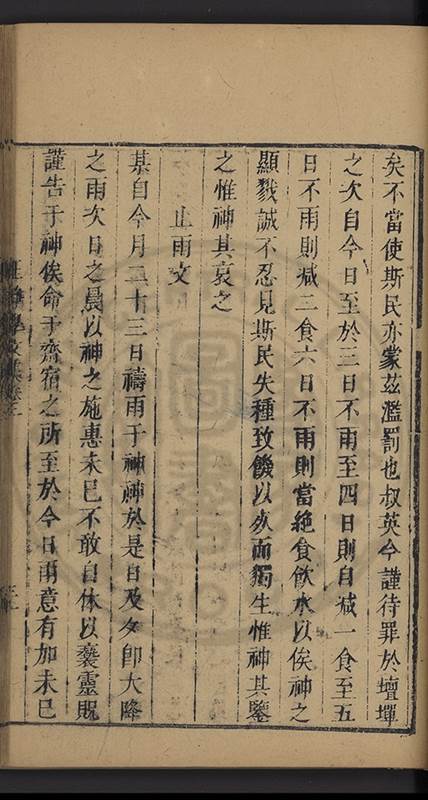 矣不當使斯民亦蒙茲濫罰也叔英今謹待罪於壇墠
之次自今日至於三日不雨至四日則自减一食至五
日不雨則减二食六日不雨則當絶食飲水以俟神之
顯戮誠不忍見斯民失種致饑以死而獨生惟神其鑒
之惟神其哀之
止雨文
某自今月二十三日禱雨于神神於是日及夕即大降
之雨次日之晨以神之施惠未已不敢自休以褻靈貺
謹告于神俟命于齋宿之所至於今日雨意有加未已